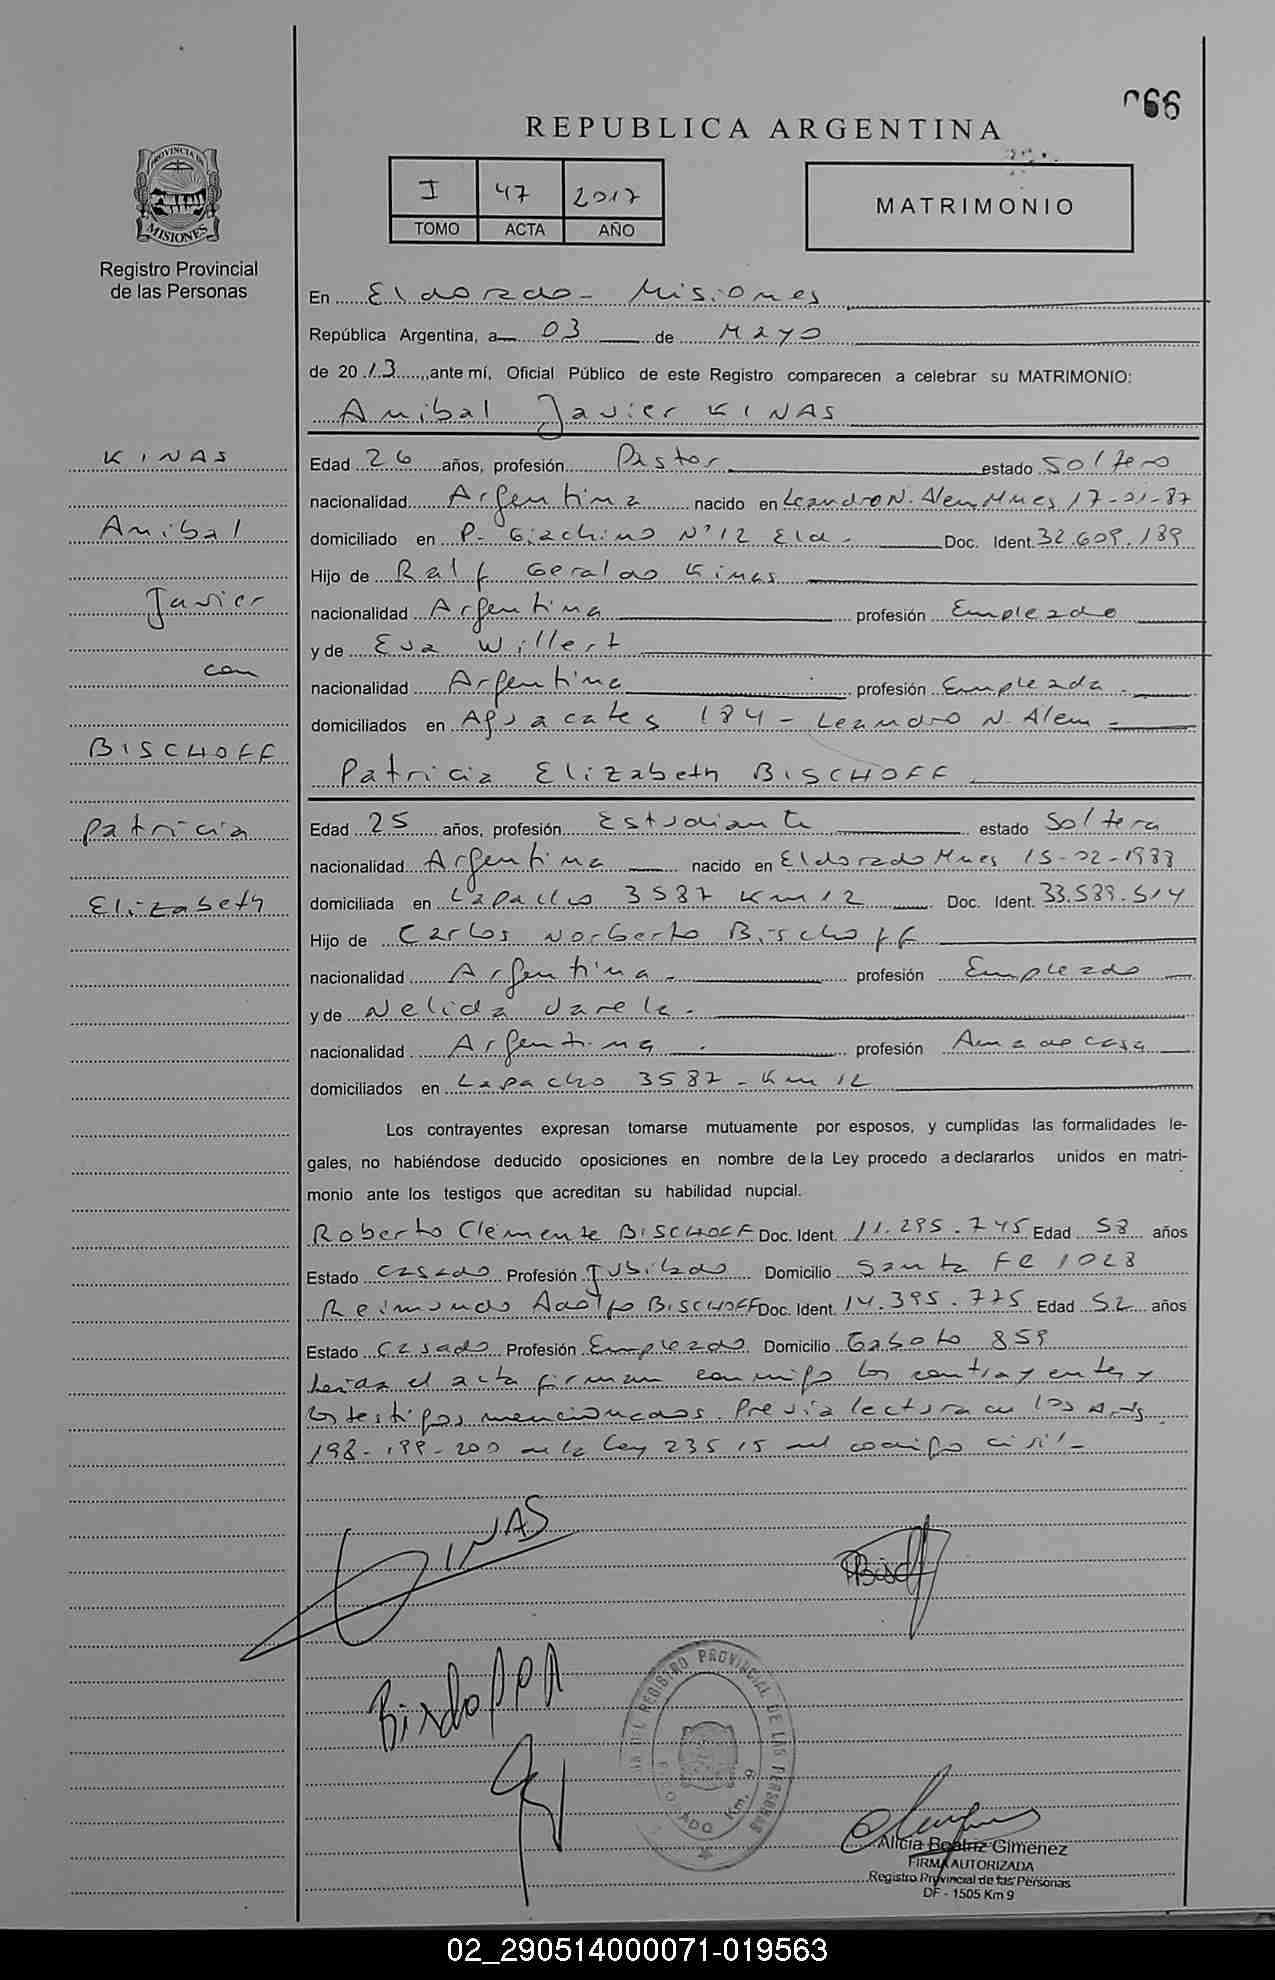 066
REPUBLICA ARGENTINA
I 47 2017
TOMO ACTA AÑO
MATRIMONIO
PROVINCIA DE
MISIONES
Registro Provincial
de las Personas
En Eldorado - Misiones
República Argentina, a 03 de Mayo
de 2013, ante mí, Oficial Público de este Registro comparecen a celebrar su MATRIMONIO:
Anibal Javier KINAS
KINAS
Anibal
Javier
con
BISCHOFF
Patricia
Elizabeth
Edad 26 años, profesión Pastor estado Soltero
nacionalidad Argentina nacido en Leandro N. Alem Mnes 17-01-87
domiciliado en P. Giachino N° 12 Eld. Doc. Ident. 32.609.189
Hijo de Ralf Geraldo Kinas
nacionalidad Argentina profesión Empleado
y de Eva Willert
nacionalidad Argentina profesión Empleada.
domiciliados en Aguacates 184 - Leandro N. Alem -
Patricia Elizabeth BISCHOFF
Edad 25 años, profesión Estudiante estado Soltera
nacionalidad Argentina nacido en Eldorado Mnes 15-02-1988
domiciliada en Lapacho 3587 Km 12 Doc. Ident. 33.589.514
Hijo de Carlos Norberto Bischoff
nacionalidad Argentina. profesión Empleado
y de Nelida Varela.
nacionalidad Argentina. profesión Ama de casa
domiciliados en Lapacho 3587 - Km 12
Los contrayentes expresan tomarse mutuamente por esposos, y cumplidas las formalidades le-
gales, no habiéndose deducido oposiciones en nombre de la Ley procedo a declararlos unidos en matri-
monio ante los testigos que acreditan su habilidad nupcial.
Roberto Clemente BISCHOFF Doc. Ident. 11.295.745 Edad 58 años
Estado Casado Profesión Jubilado Domicilio Santa Fe 1028
Reimundo Adolfo BISCHOFF Doc. Ident. 14.395.775 Edad 52 años
Estado Casado Profesión Empleado Domicilio Gaboto 859
Leida el acta firman conmigo los contrayentes y
los testigos mencionados. Previa lectura de los Arts.
198-199-200 de la Ley 23515 del codigo civil-
KINAS
REGISTRO PROVINCIAL DE LAS PERSONAS
Km. 9
Alicia Beatriz Gimenez
FIRMA AUTORIZADA
Registro Provincial de las Personas
DF - 1505 Km 9
02_290514000071-019563